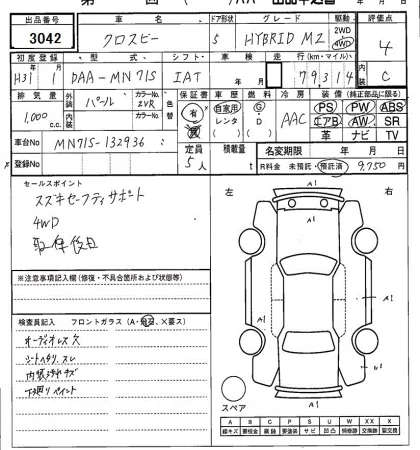 出品番号 車名 ドア形状 グレード 駆動 評価点
3042 クロスビー 5 HYBRID MZ 2WD 4WD 4
初度登録 型式 シフト 車検 走行(km・マイル) 内装
H31 1 DAA-MN71S IAT 年 月 79,314 C
排気量 外装 カラーNo. 色替 保証書 車歴 燃料 冷房 装備(純正部品に限る)
1,000 c.c. パール ZVR 有 自家用 レンタ G・D AAC PS PW ABS
エアB AW SR
革 ナビ TV
車台No MN71S-132936
登録No
定員 5人 積載量 t
名変期限 年 月 日
R料金 未預託・預託済 9,750 円
セールスポイント
スズキセーフティサポート
4WD
取保後日
左 右
※注意事項記入欄(修復・不具合箇所および状態等)
検査員記入 フロントガラス(A・飛石・X要ス)
オーディオレス欠
シートヘタリ、スレ
内装 キズ
下廻りペイント
A1
A1
A1
A1
スペア
A B C P S U W X XX
線キズ 要板金 腐蝕 要塗装 サビ 凹凸 補修跡 交換跡 要交換